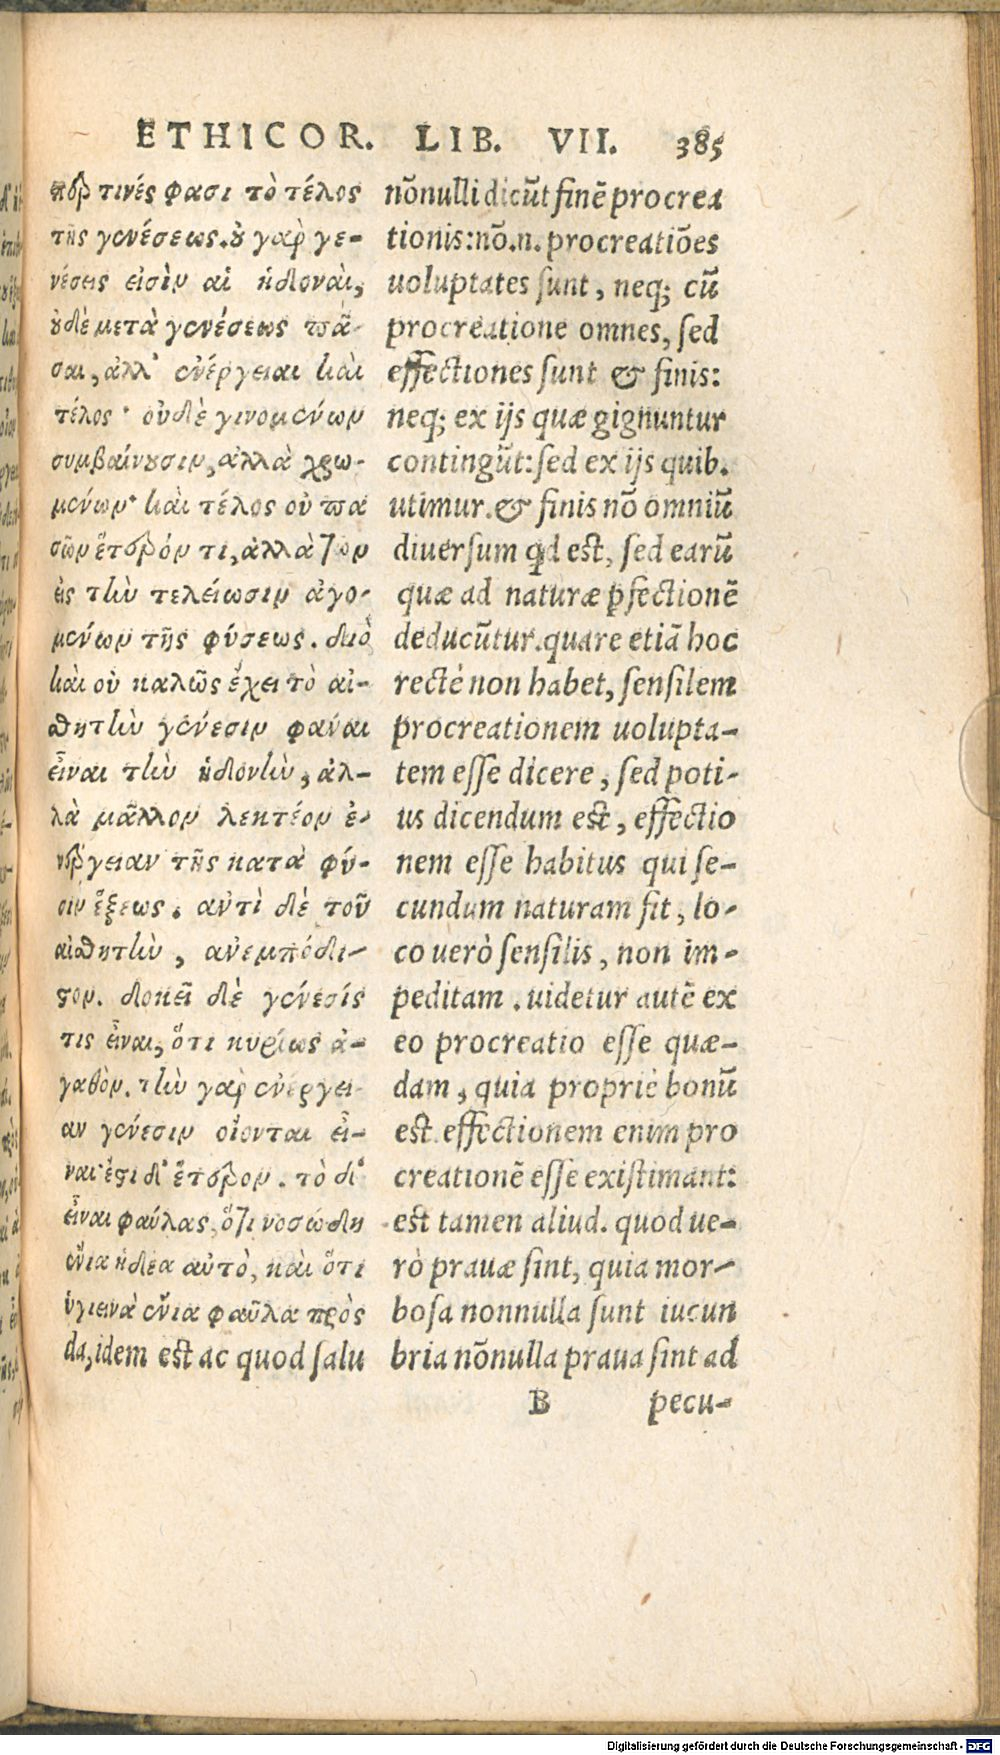 ETHICOR. LIB. VII. 385
περ τινές φασι τὸ τέλος
τῆς γενέσεως. οὐ γὰρ γε-
νέσεις εἰσὶν αἱ ἡδοναὶ,
οὐδὲ μετὰ γενέσεως πᾶ-
σαι, ἀλλ' ἐνέργειαι καὶ
τέλος· οὐδὲ γινομένων
συμβαίνουσιν, ἀλλὰ χρω-
μένων· καὶ τέλος οὐ πα
σῶν ἕτερόν τι, ἀλλὰ τῶν
εἰς τὴν τελείωσιν ἀγο-
μένων τῆς φύσεως. διὸ
καὶ οὐ καλῶς ἔχει τὸ αἰ-
σθητὴν γένεσιν φάναι
εἶναι τὴν ἡδονὴν, ἀλ-
λὰ μᾶλλον λεκτέον ἐ-
νέργειαν τῆς κατὰ φύ-
σιν ἕξεως. ἀντὶ δὲ τοῦ
αἰσθητὴν, ἀνεμπόδι-
στον. δοκεῖ δὲ γένεσίς
τις εἶναι, ὅτι κυρίως ἀ-
γαθὸν. τὴν γὰρ ἐνέργει-
αν γένεσιν οἴονται εἶ-
ναι· ἔστι δ' ἕτερον. τὸ δ'
εἶναι φαύλας, ὅτι νοσώδη
ἔνια ἡδέα αὐτὸ, καὶ ὅτι
ὑγιεινὰ ἔνια φαῦλα πρὸς
nōnulli dicūt finē procrea
tionis: nō.n. procreatiōes
uoluptates sunt, neq; cū
procreatione omnes, sed
effectiones sunt & finis:
neq; ex ijs quæ gignuntur
contingūt: sed ex ijs quib.
utimur. & finis nō omniū
diuersum qd est, sed earū
quæ ad naturæ pfectionē
deducūtur. quare etiā hoc
rectè non habet, sensilem
procreationem uolupta-
tem esse dicere, sed poti-
us dicendum est, effectio
nem esse habitus qui se-
cundum naturam sit, lo-
co uerò sensilis, non im-
peditam. uidetur autē ex
eo procreatio esse quæ-
dam, quia propriè bonū
est. effectionem enim pro
creationē esse existimant:
est tamen aliud. quod ue-
rò prauæ sint, quia mor-
bosa nonnulla sunt iucun
da, idem est ac quod salu
bria nōnulla praua sint ad
B pecu-
Digitalisierung gefördert durch die Deutsche Forschungsgemeinschaft - DFG